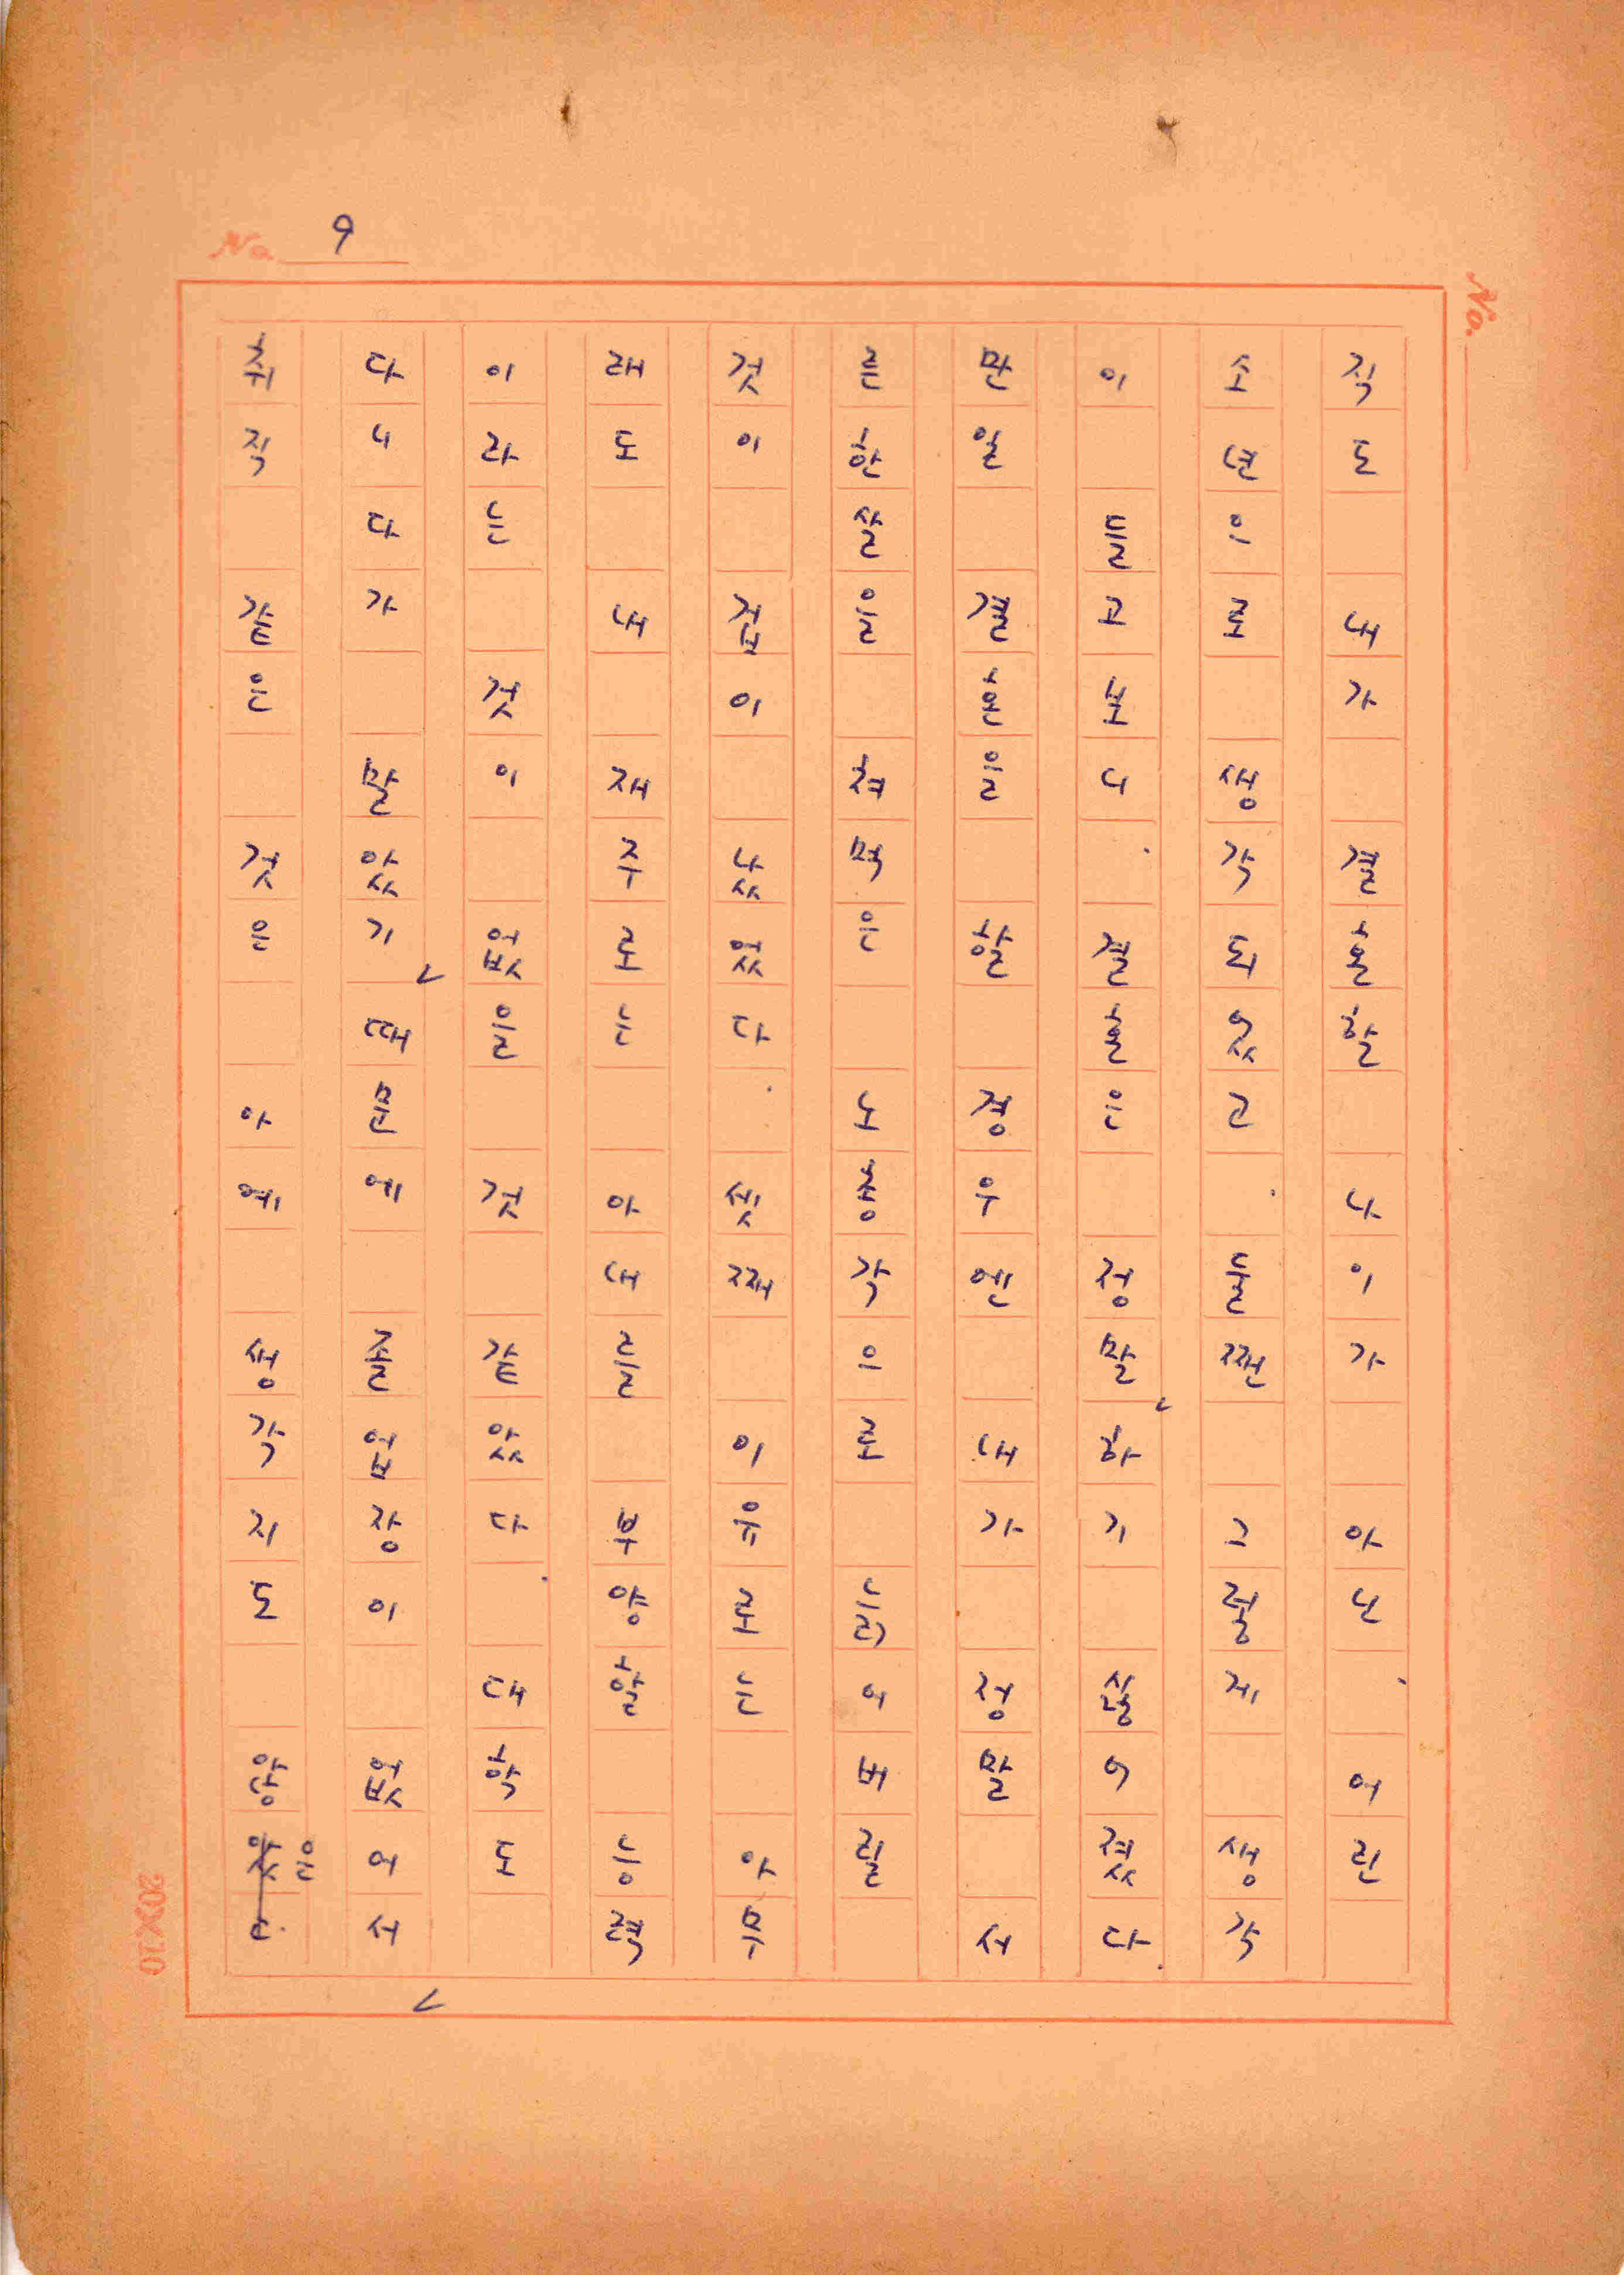 No. 9
No.
직도 내가 결혼할 나이가 아닌, 어린
소년으로 생각되었고. 둘짼 그렇게 생각
이 들고보니. 결혼은 정말, 하기 싫어졌다.
만일 결혼을 할 경우엔 내가 정말 서
른한살을 헛먹은 노총각으로 늙어버릴
것이 겁이 났었다. 셋째 이유로는 아무
래도 내 재주로는 아내를 부양할 능력
이라는 것이 없을 것 같았다. 대학도
다니다가 말았기, 때문에 졸업장이 없어서,
취직 같은 것은 아예 생각지도 않은
20X10